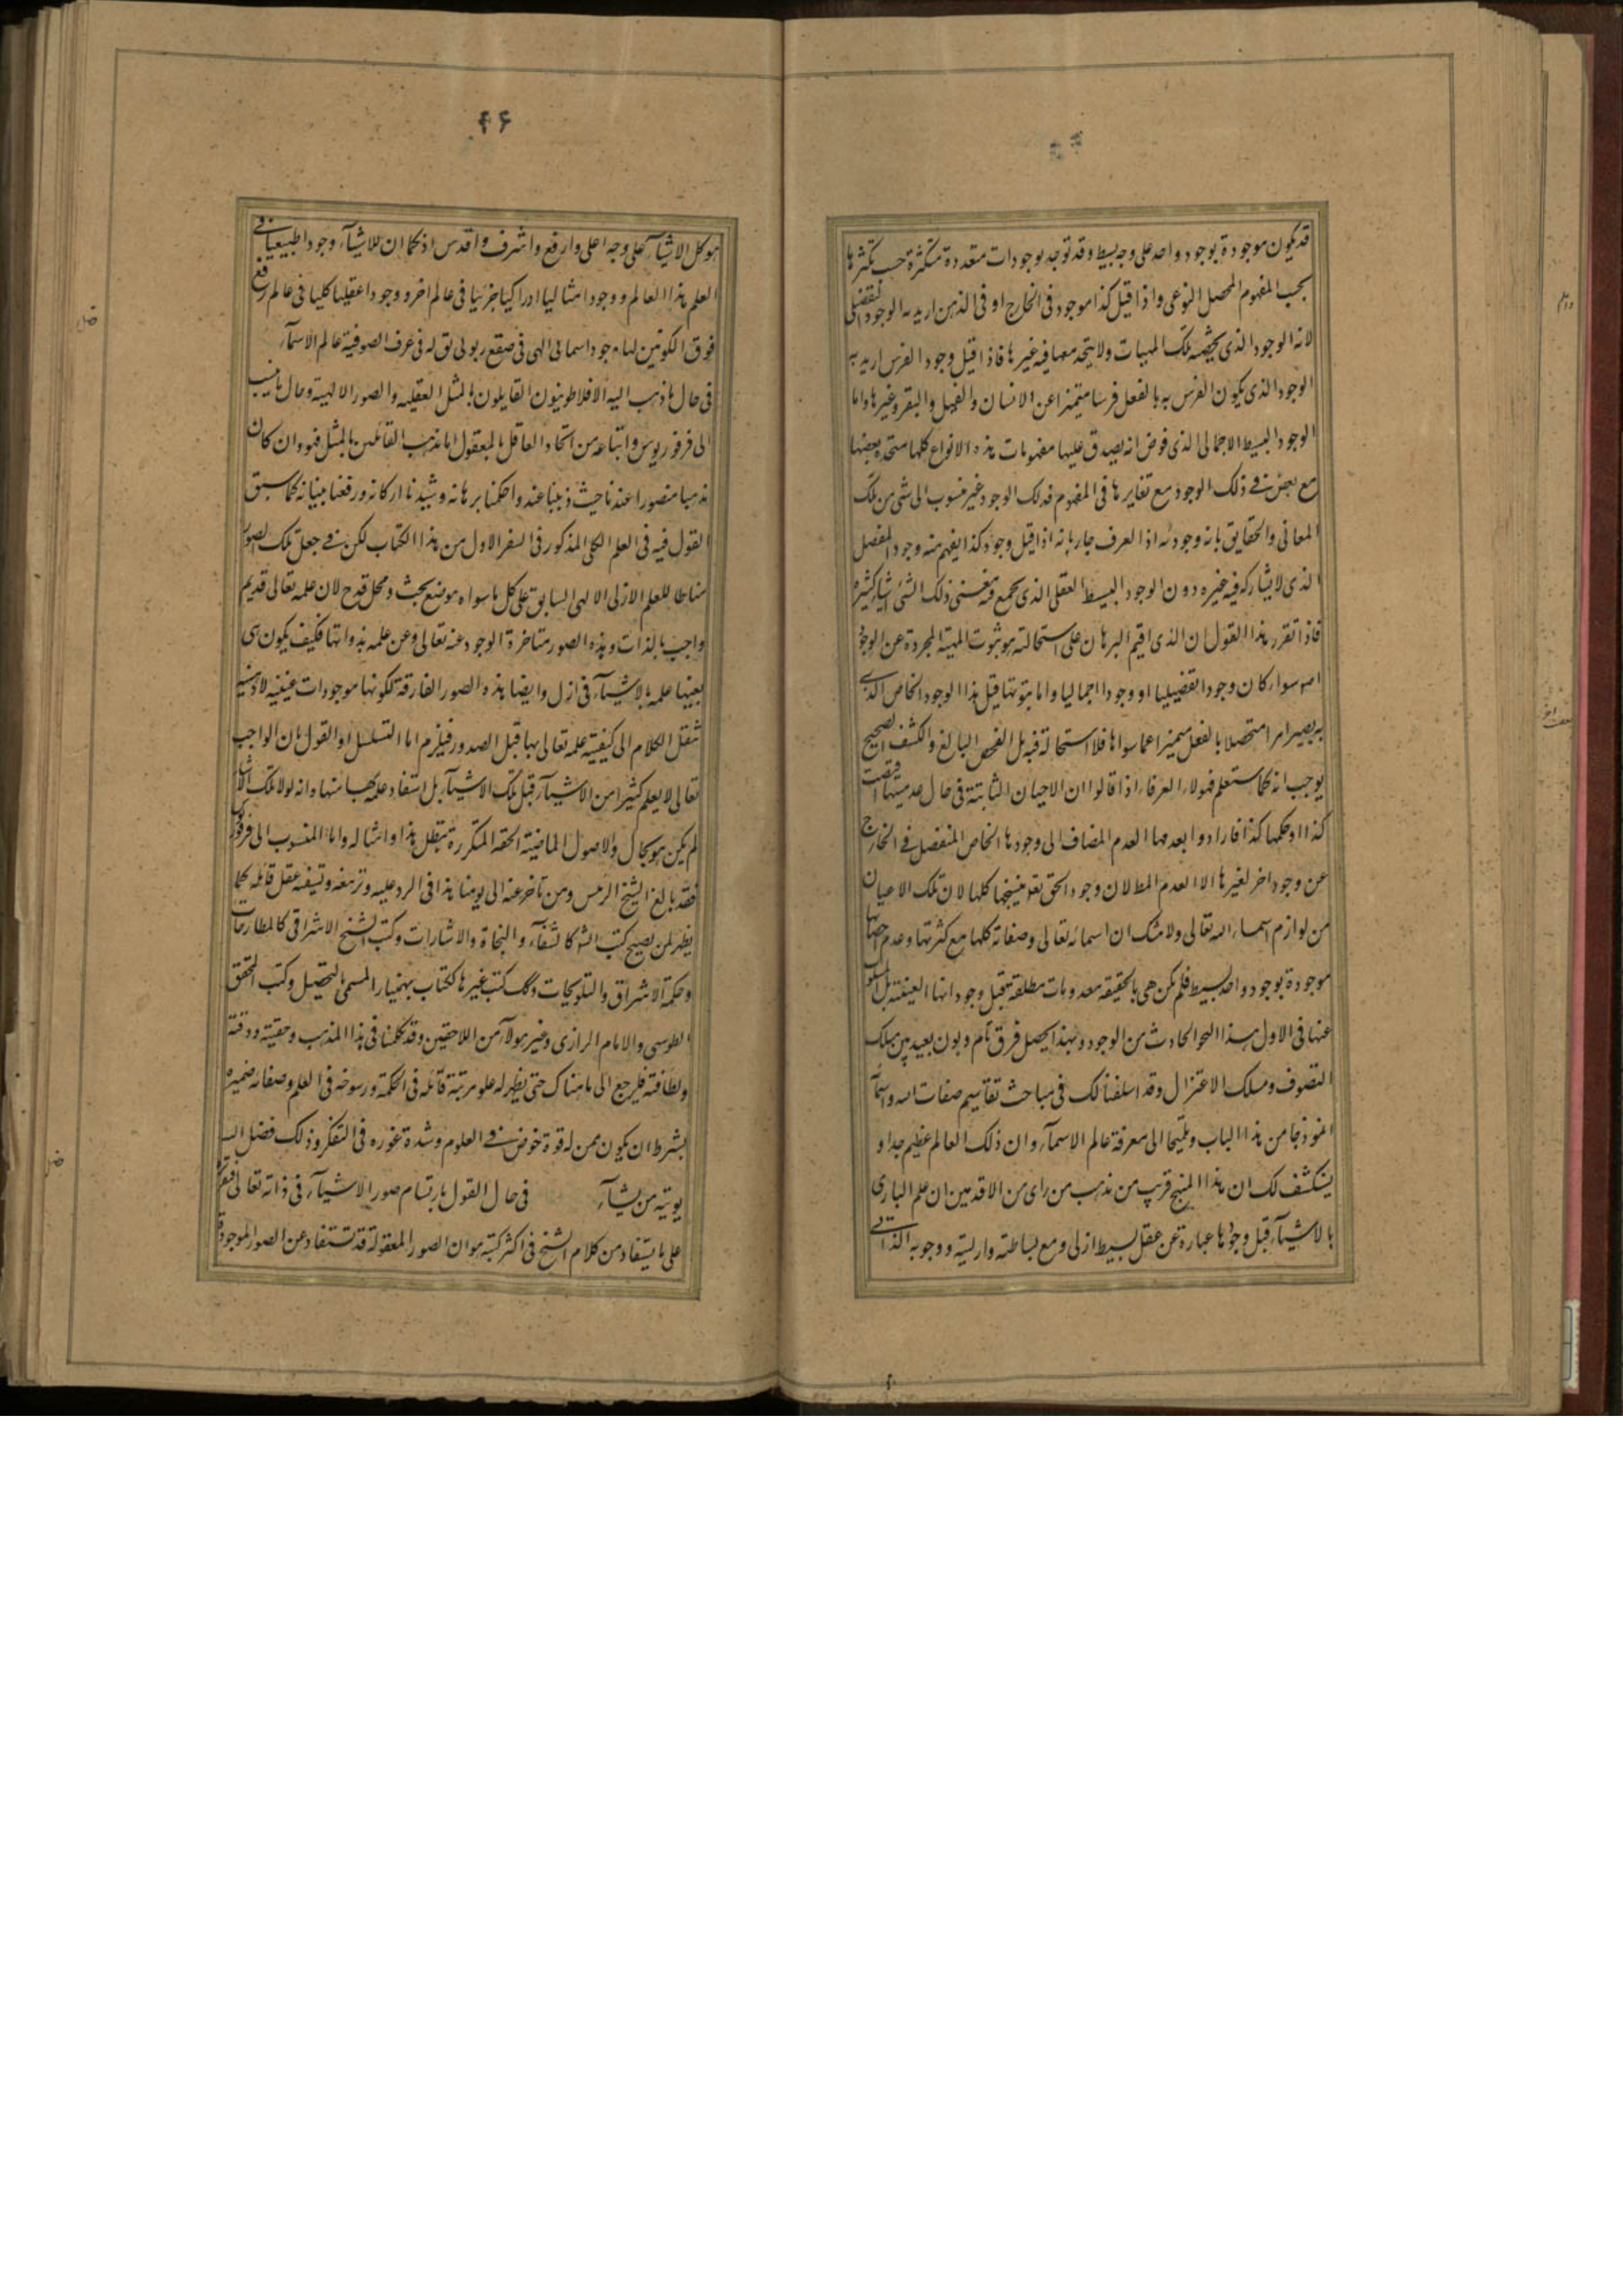 قد يكون موجودة بوجود واحد على وجه بسيط وقد توجد بوجودات متعددة متكثرة حسب تكثرها
بحسب المفهوم المحصل النوعى واذا قيل كذا موجود فى الخارج او فى الذهن اريد به الوجود التفصيلى
لانه الوجود الذى يخصه تلك المهيات ولا يتحد معها فيه غيرها فاذا قيل وجود الفرس اريد به
الوجود الذى يكون الفرس به بالفعل فرسا متميزا عن الانسان والفيل والبقر وغيرها واما
الوجود البسيط الاجمالى الذى فرض انه يصدق عليها مفهومات هذه الانواع كلها متحدة بعضها
مع بعض فى ذلك الوجود مع تغايرها فى المفهوم فذلك الوجود غير منسوب الى شى من تلك
المعانى والحقايق بانه وجود له اذ العرف جار بانه اذا قيل وجود كذا يفهم منه وجوده المفصل
الذى لا يشاركه فيه غيره دون الوجود البسيط العقلى الذى يجمع فيه مع ذلك الشى اشياء كثيرة
فاذا تقرر هذا القول ان الذى اقيم البرهان على استحالته هو ثبوت المهية المجردة عن الوجود
سواء كان وجودا تفصيليا او وجودا اجماليا واما ثبوتها قبل هذا الوجود الخاص الذى
به يصير امرا متحصلا بالفعل متميزا عما سواها فلا استحالة فيه بل الفحص البالغ والكشف الصحيح
يوجب انه كما ستعلم فهولاء العرفاء اذا قالوا ان الاعيان الثابتة فى حال عدميتها اقتضت
كذا او حكمها كذا فارادوا بعدمها العدم المضاف الى وجودها الخاص المنفصل فى الخارج
عن وجود اخر لغيرها لا العدم المطلق لان وجود الحق تع ينسحبها كلها لان تلك الاعيان
من لوازم اسماء الله تعالى ولا شك ان اسمائه تعالى وصفاته كلها مع كثرتها وعدم احصائها
موجودة بوجود واحد بسيط فلم تكن هى بالحقيقة معدومات مطلقة قبل وجوداتها العينية بل المسلوب
عنها فى الاول هذا النحو الحادث من الوجود وبهذا يحصل فرق تام وبون بعيد بين مسلك
التصوف ومسلك الاعتزال وقد اسلفنا لك فى مباحث تقاسيم صفات الله واسمائه
انموذجا من هذا الباب وتلميحا الى معرفة عالم الاسماء وان ذلك العالم عظيم جدا و
ينكشف لك ان هذا المنهج قريب من مذهب من راى من الاقدمين ان علم البارى
بالاشياء قبل وجودها عبارة عن عقل بسيط ازلى ومع بساطته وازليته ووجوبه الذاتى
۴۶
هو كل الاشياء على وجه اعلى وارفع واشرف واقدس اذ كما ان للاشياء وجودا طبيعيا فى
هذا العالم ووجودا مثاليا ادراكيا جزئيا فى عالم اخر ووجودا عقليا كليا فى عالم
فوق الكونين لها وجود اسمائى الهى فى صقع ربوبى يق له فى عرف الصوفية عالم الاسماء
فى حال ما ذهب اليه الافلاطونيون القايلون بالمثل العقليه والصور الالهية وحال ما ينسب
الى فرفوريوس واتباعه من اتحاد العاقل بالمعقول اما مذهب القائلين بالمثل فهو وان كان
مذهبا منصورا عندنا حيث ذببنا عنه واحكمنا برهانه وشيدنا اركانه ورفعنا بنيانه كما سبق
القول فيه فى العلم الكلى المذكور فى السفر الاول من هذا الكتاب لكن فى جعل تلك الصور
مناطا للعلم الازلى الالهى السابق على كل ما سواه موضع بحث ومحل قدح لان علمه تعالى قديم
واجب بالذات وهذه الصور متاخرة الوجود عنه تعالى وعن علمه بذواتها فكيف يكون هى
بعينها علمه بالاشياء فى ازل وايضا هذه الصور المفارقة لكونها موجودات عينية لا ذهنية
ننقل الكلام الى كيفية علمه تعالى بها قبل الصدور فيلزم اما التسلسل او القول بان الواجب
تعالى لا يعلم كثيرا من الاشياء قبل تلك الاشياء بل استفاد علمه بها منها وانه لولا تلك الاشياء
لم يكن هو بحال والاصول الماضية الحقة المتكررة تبطل هذا وامثاله واما المنسوب الى فرفوريوس
فقد بالغ الشيخ الرئيس ومن تاخر عنه الى يومنا هذا فى الرد عليه وتزييفه وتسفيه عقل قائله كما
يظهر لمن تصفح كتب الشيخ كالشفاء والنجاة والاشارات وكتب الشيخ الاشراقى كالمطارحات
وحكمة الاشراق والتلويحات وكذلك كتب غيرهما ككتاب بهمنيار المسمى بالتحصيل وكتب المحقق
الطوسى والامام الرازى وغير هولاء من اللاحقين وقد تكلمنا فى هذا المذهب وحقيته ودقته
ولطافته فليرجع الى ما هناك حتى يظهر له علو مرتبة قائله فى الحكمة ورسوخه فى العلم وصفاء ضميره
بشرط ان يكون ممن له قوة خوض فى العلوم وشدة غوره فى التفكر وذلك فضل الله
يوتيه من يشاء فى حال القول بارتسام صور الاشياء فى ذاته تعالى
على ما يستفاد من كلام الشيخ فى اكثر كتبه هو ان الصور المعقولة قد تستفاد عن الصور الموجودة